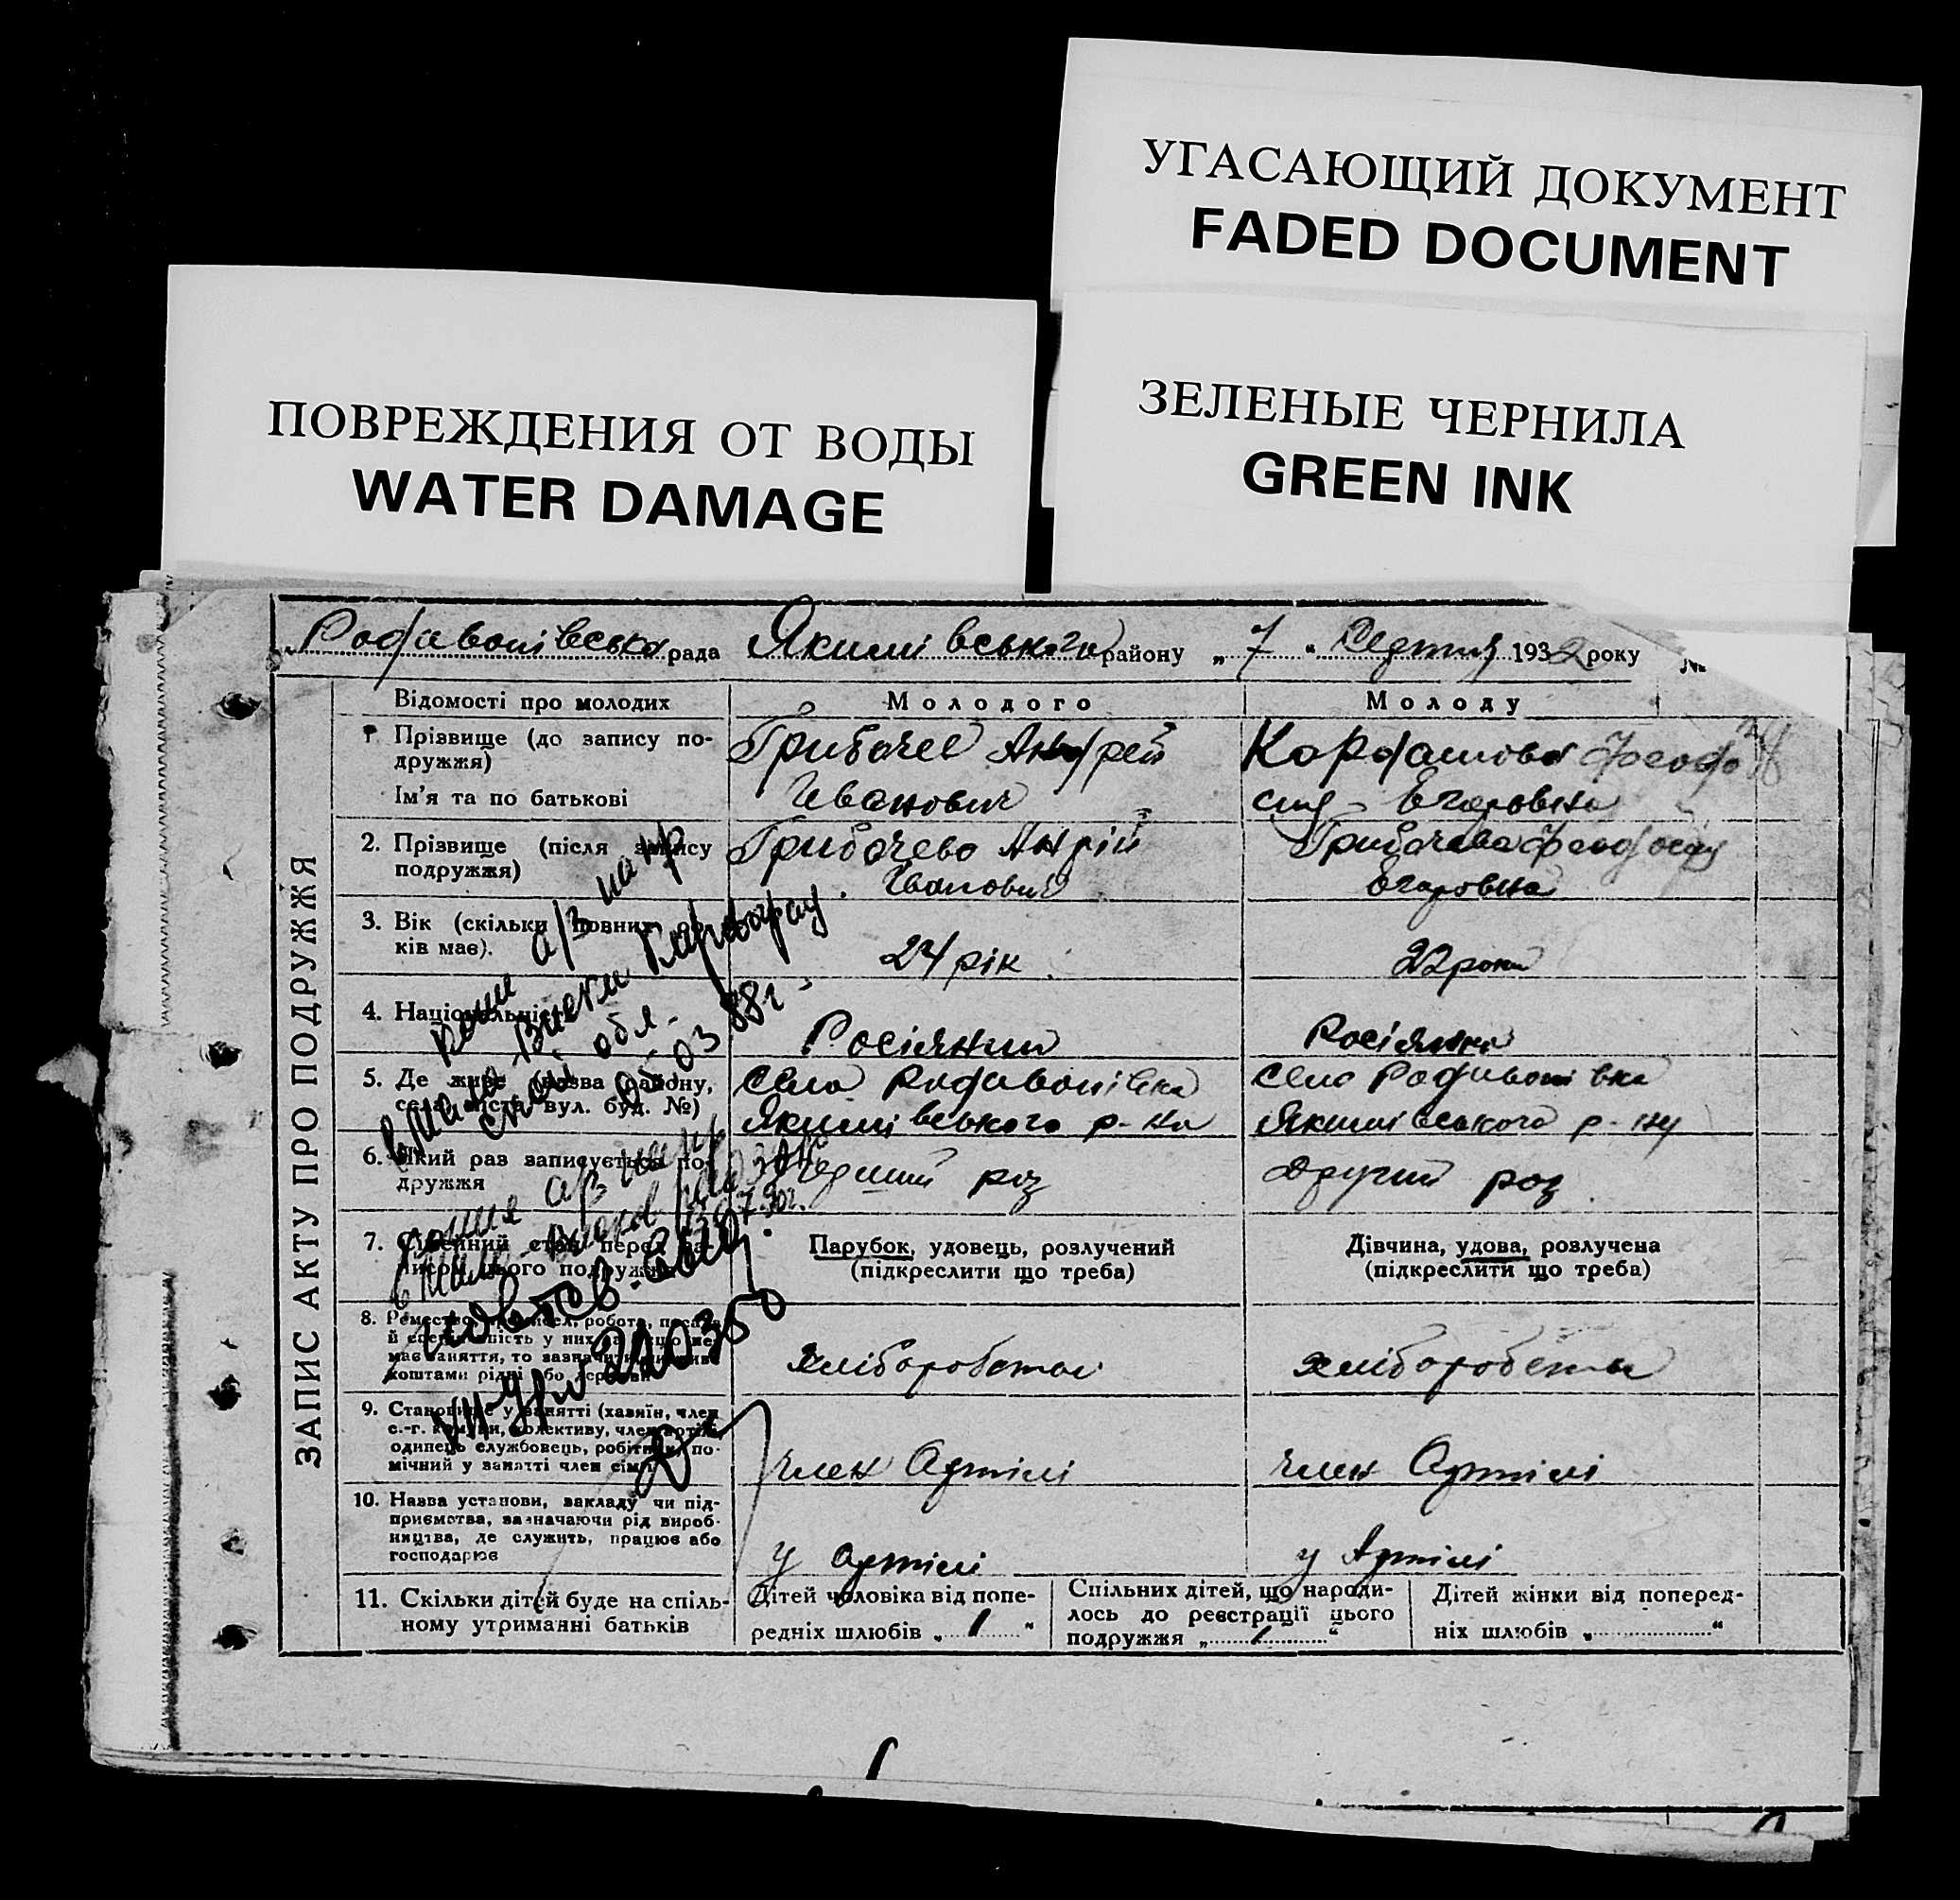 УГАСАЮЩИЙ ДОКУМЕНТ
FADED DOCUMENT
ПОВРЕЖДЕНИЯ ОТ ВОДЫ
WATER DAMAGE
ЗЕЛЕНЫЕ ЧЕРНИЛА
GREEN INK
Родивонівська рада Якимівського району „ 7 “ 1932 року №
ЗАПИС АКТУ ПРО ПОДРУЖЖЯ
Відомості про молодих Молодого Молоду
Прізвище (до запису по-
дружжя)
Ім'я та по батькові
Грибачев Андрей
Иванович
Кардашова Феодо
сия Егоровна
2. Прізвище (після запису
подружжя)
Грибачево Андрій
Іванович
Грибачева Феодосия
Егоровна
3. Вік (скільки повних
ків має).
24 рік
22 роки
4. Національність
Росіянин
Росіянка
5. Де живе (назва району,
села, міста вул. буд. №)
село Родивонівка
Якимівського р-на
село Родивонівка
Якимівського р-ну
6. Який раз записується по-
дружжя
перший раз
другий раз
7. Сімейний стан перед за-
писом цього подружжя
Парубок, удовець, розлучений
(підкреслити що треба)
Дівчина, удова, розлучена
(підкреслити що треба)
8. Ремество, промисел, робота, посада
й
має заняття, то зазначити
коштами рідні або держави
хлібороб
хлібороб
9. Становище у занятті (хазяїн, член
с.-г. комуни, колективу, член артілі
одинець службовець, робітник, по-
мічний у занятті член сім'ї
член Артілі
член Артілі
10. Назва установи, закладу чи під-
приємства, зазначаючи рід вироб-
ництва, де служить, працює або
господарює
у артілі
у Артілі
11. Скільки дітей буде на спіль-
ному утриманні батьків
Дітей чоловіка від попе-
редніх шлюбів „ “
Спільних дітей, що народи-
лось до реєстрації цього
подружжя „ “
Дітей жінки від поперед-
ніх шлюбів „ “
05-03 88г.
210350